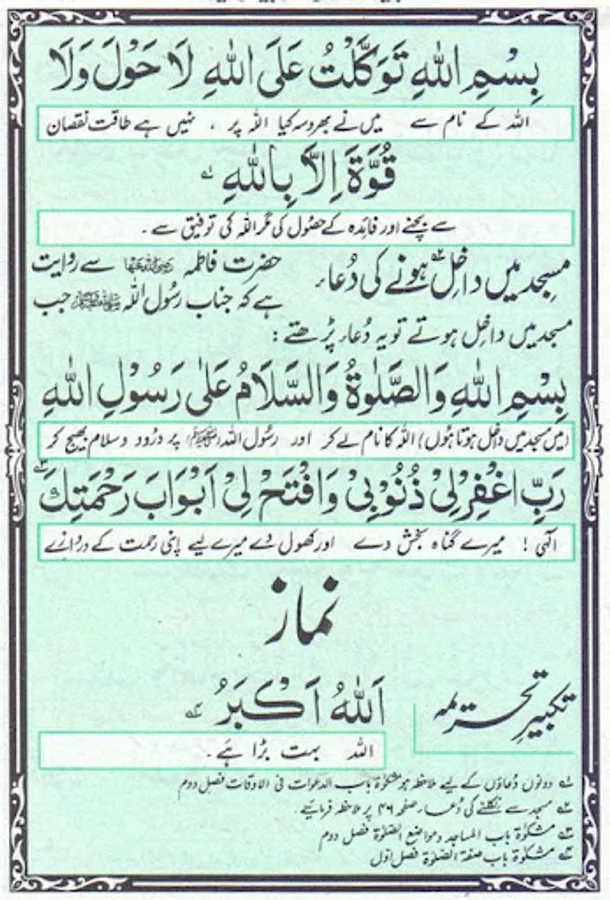 بِسْمِ اللهِ تَوَكَّلْتُ عَلَى اللهِ لَا حَوْلَ وَلَا
اللہ کے نام سے میں نے بھروسہ کیا اللہ پر ، نہیں ہے طاقت نقصان
قُوَّةَ اِلَّا بِاللهِ ؎۱
سے بچنے اور فائدہ کے حصول کی مگر اللہ کی توفیق سے ۔
مسجد میں داخل ؎۲ ہونے کی دُعاء۔ حضرت فاطمہ رضی اللہ عنہا سے روایت
ہے کہ جناب رسُول اللہ ﷺ جب
مسجد میں داخل ہوتے تو یہ دُعاء پڑھتے :
بِسْمِ اللهِ وَالصَّلٰوةُ وَالسَّلَامُ عَلٰى رَسُوْلِ اللهِ
(میں مسجد میں داخل ہوتا ہوں) اللہ کا نام لے کر اور رسُول اللہ (ﷺ) پر درُود و سلام بھیج کر
رَبِّ اغْفِرْلِىْ ذُنُوْبِىْ وَافْتَحْ لِىْ اَبْوَابَ رَحْمَتِكَ ؎۳
الٰہی ! میرے گناہ بخش دے اور کھول دے میرے لیے اپنی رحمت کے دروازے
نماز
تکبیرِ تحریمہ اَللهُ اَكْبَرُ ؎۴
اللہ بہت بڑا ہے ۔
؎۱ دونوں دُعاؤں کے لیے ملاحظہ ہو مشکوٰۃ باب الدعوات فی الاوقات فصل دوم
؎۲ مسجد سے نکلنے کی دُعاء۔ صفحہ ۴۶ پر ملاحظہ فرمائیے ۔
؎۳ مشکوٰۃ باب المساجد ومواضع الصَّلوٰۃ فصل دوم
؎۴ مشکوٰۃ باب صفۃ الصَّلوٰۃ فصل اوّل